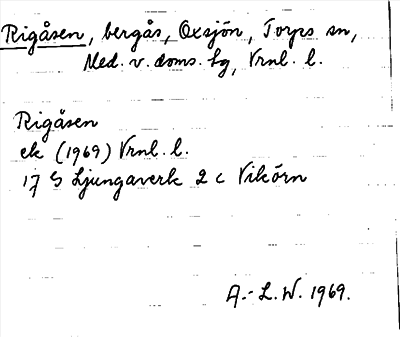 Rigåsen, bergås, Oxsjön, Torps sn,
Med. v. doms. lg, Vrnl. l.
Rigåsen
ek (1969) Vrnl. l.
17 G Ljungaverk 2 c Vikörn
A.-L.W. 1969.